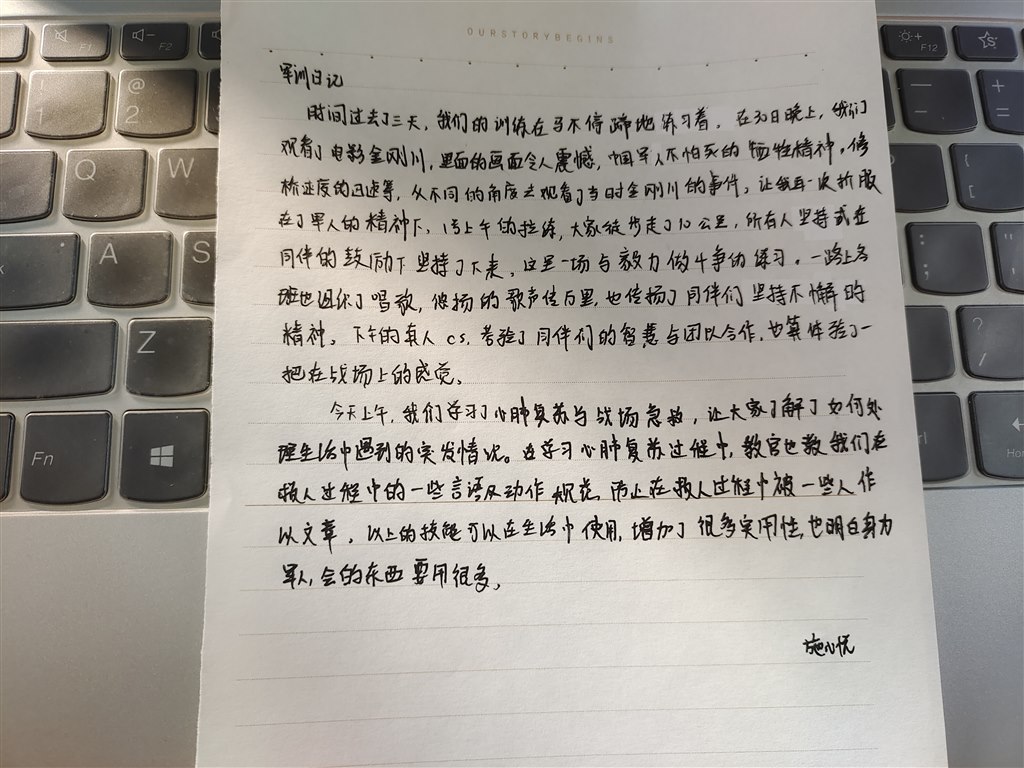 OURSTORYBEGINS
军训日记
时间过去了三天，我们的训练在马不停蹄地练习着。在30日晚上，我们
观看了电影金刚川，里面的画面令人震撼，中国军人不怕死的牺牲精神，修
桥速度的迅速等，从不同的角度去观看了当时金刚川的事件，让我再一次折服
在了军人的精神下，1号上午的拉练，大家徒步走了10公里，所有人坚持或在
同伴的鼓励下坚持了下来，这是一场与毅力做斗争的练习。一路上各
班也组织了唱歌，悠扬的歌声传万里，也传扬了同伴们坚持不懈的
精神。下午的真人cs，考验了同伴们的智慧与团队合作，也算体验了一
把在战场上的感觉。
今天上午，我们学习了心肺复苏与战场急救，让大家了解了如何处
理生活中遇到的突发情况。在学习心肺复苏过程中，教官也教我们在
救人过程中的一些言语及动作规范，防止在救人过程中被一些人作
以文章，以上的技能可以在生活中使用，增加了很多实用性，也明白身为
军人，会的东西要用很多。
施心悦
F1
F2
F12
1
@
2
Q
W
A
S
Z
Fn
?
/
+
=
:
;